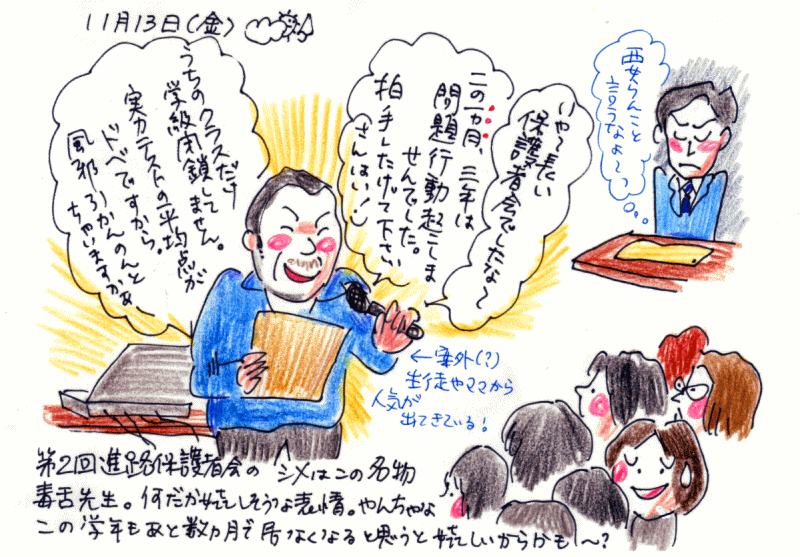 11月13日(金)
いや〜長い
保護者会でしたな〜
この一ヵ月、三年は
問題行動起こしま
せんでした。
拍手したげて下さい
さんはい!
うちのクラスだけ
学級閉鎖してません。
実力テストの平均点が
ドベですから。
風邪ひかんのんと
ちゃいますかぁ
要らんこと
言うなよ〜っ
←案外(?)
生徒やママから
人気が
出てきている!
第2回進路保護者会の シメはこの名物
毒舌先生。何だか嬉しそうな表情。やんちゃな
この学年もあと数ヵ月で居なくなると思うと嬉しいからかも〜?